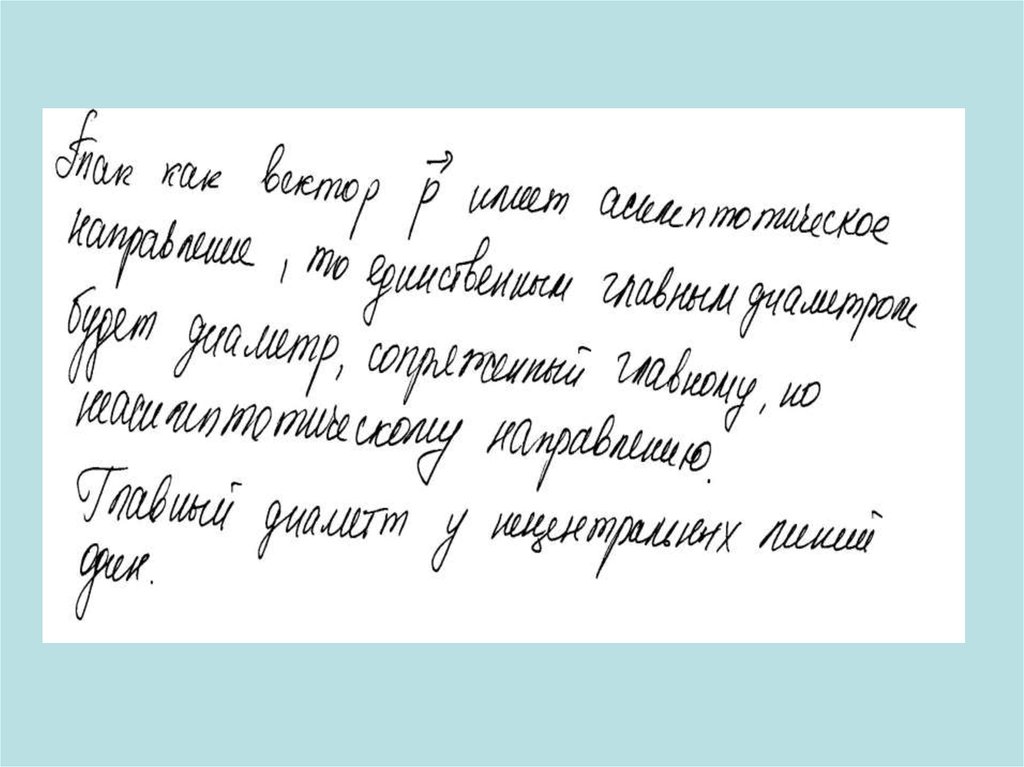 Так как вектор p⃗ имеет асимптотическое
направление, то единственным главным диаметром
будет диаметр, сопряженный главному, но
неасимптотическому направлению.
Главный диаметр у нецентральных линий
один.